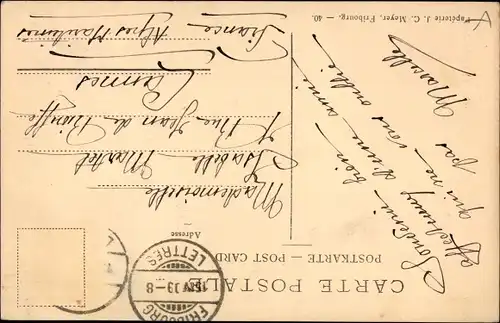 CARTE POSTALE
POSTKARTE — POST CARD
Adresse
Souvenir bien
affectueux d'une amie
qui ne vous oublie
pas
Marcelle
Mademoiselle
Isabelle Martel
Rue Jean de Riouffe
Cannes
Alpes Maritimes
France
FRIBOURG
LETTRES
Papeterie J. C. Meyer, Fribourg. — 40.